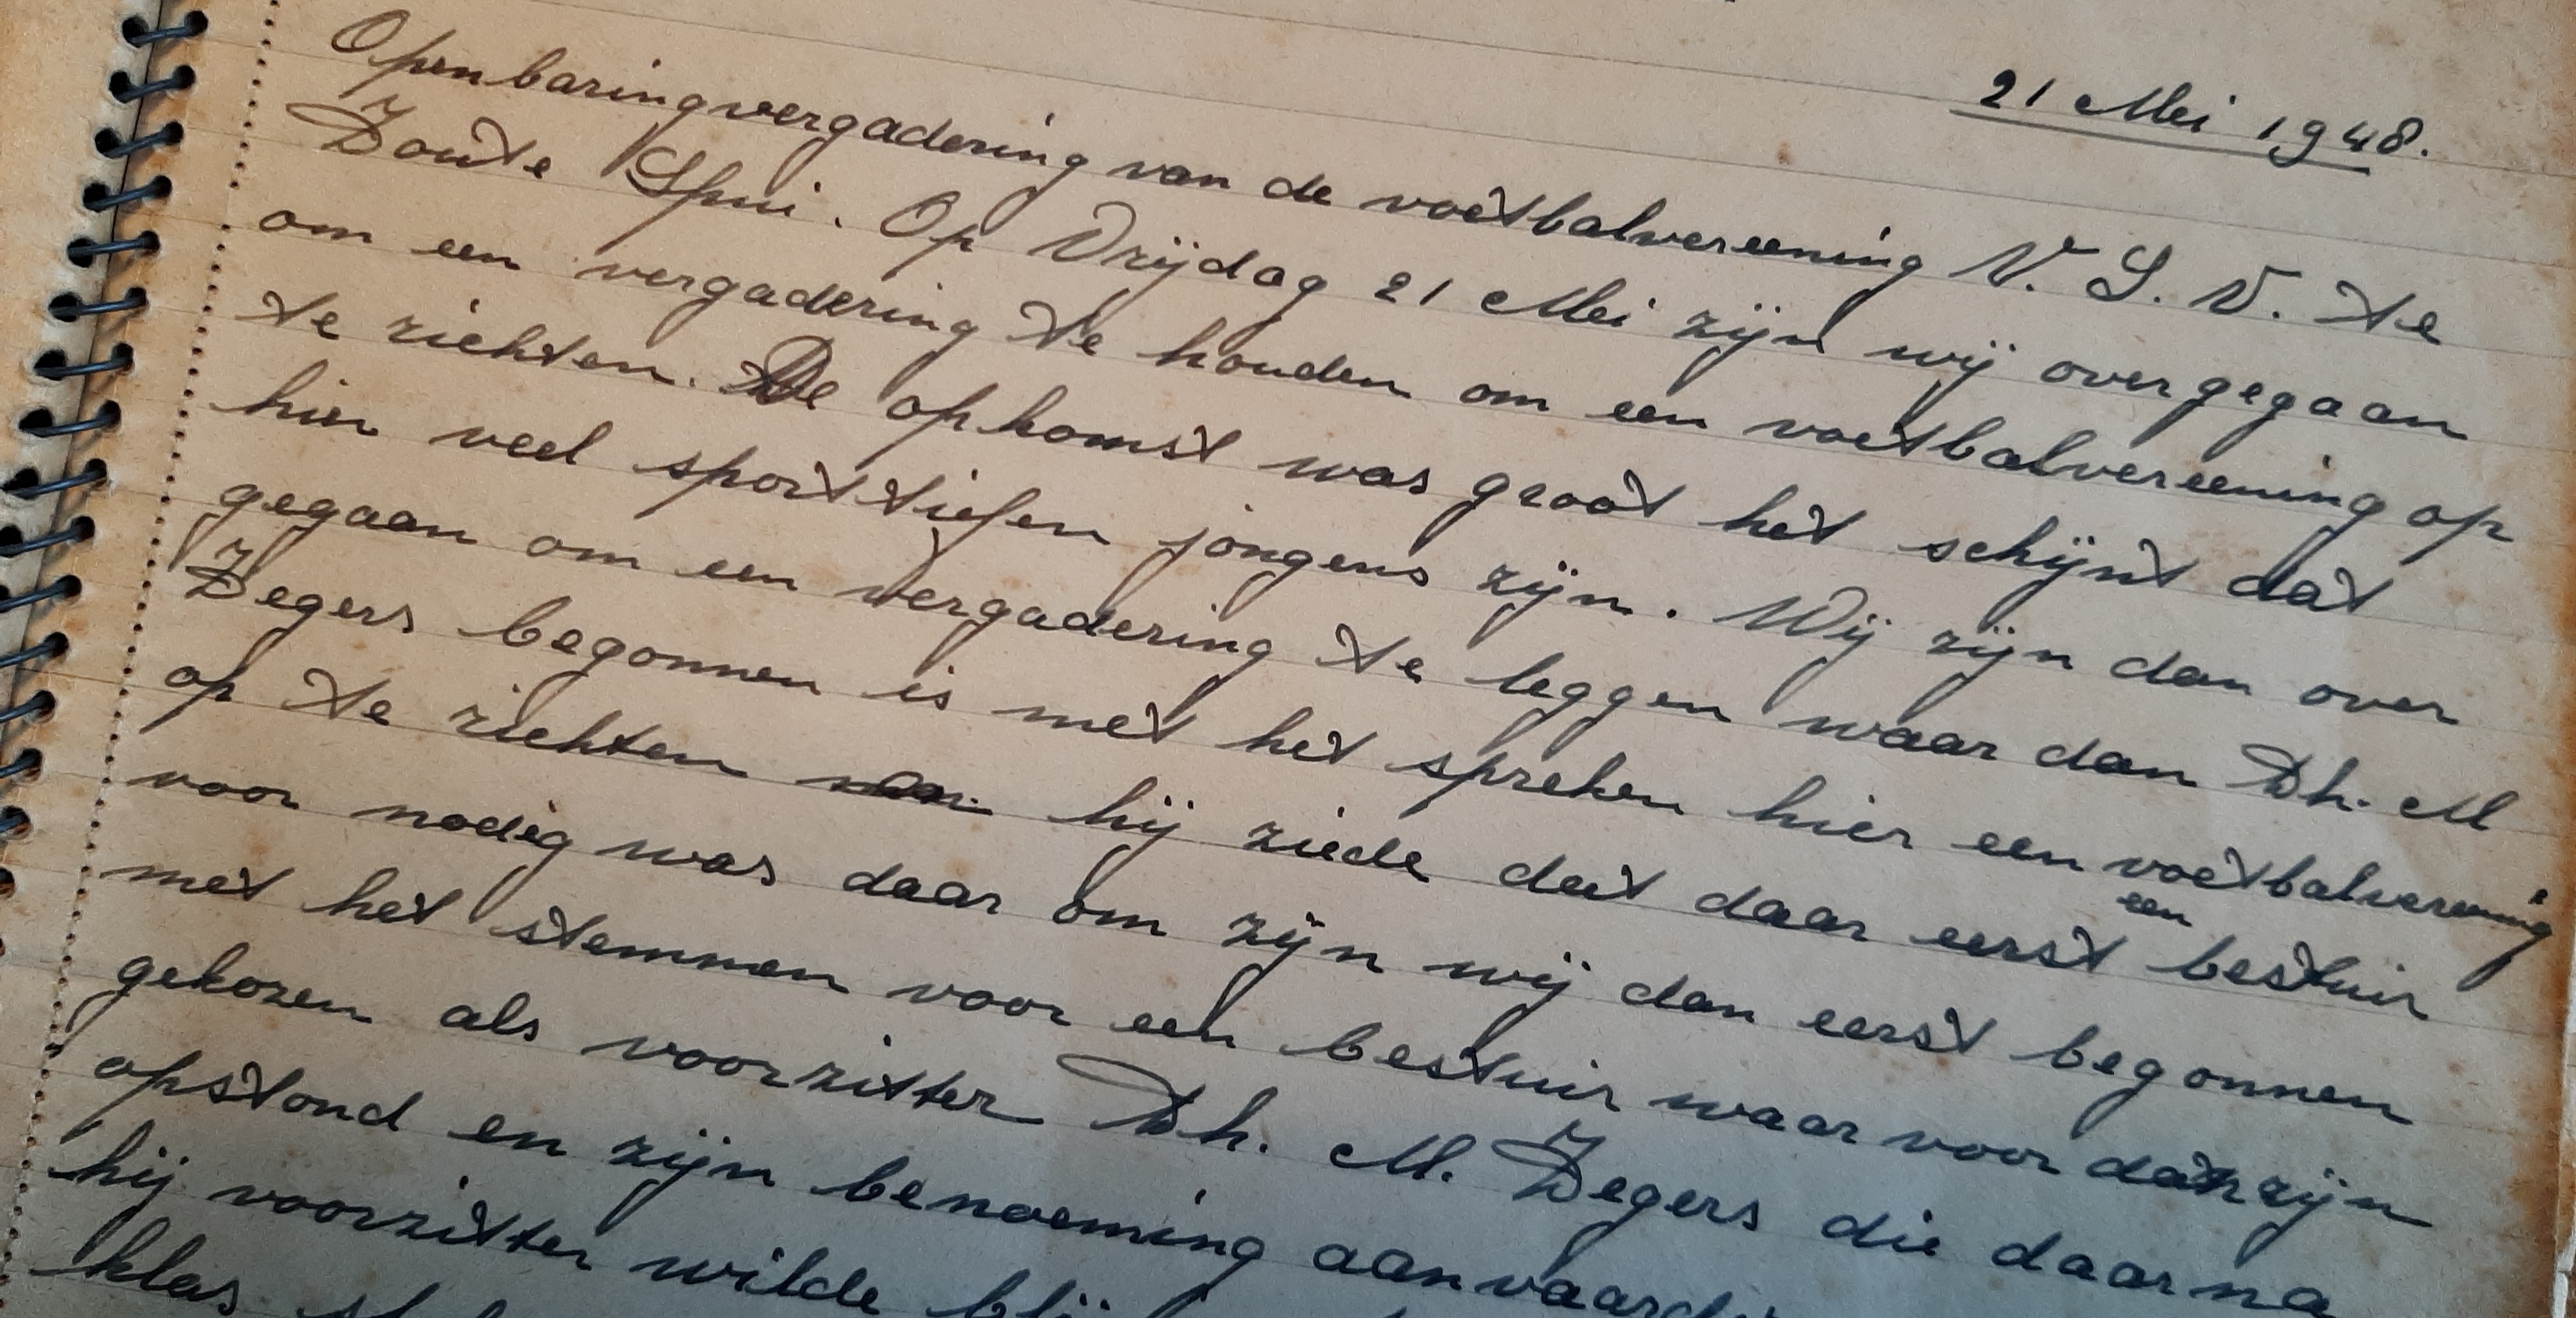 21 Mei 1948.
Openbaringvergadering van de voetbalvereening V. S. V. te
Zoute Spui. Op Vrijdag 21 Mei zijn wij overgegaan
om een vergadering te houden om een voetbalvereening op
te richten. De opkomst was groot het schijnt dat
hier veel sporttiefen jongens zijn. Wij zijn dan over
gegaan om een vergadering te leggen waar dan Dh. M
Zegers begonnen is met het spreken hier een voetbalvereening
op te richten hij ziede dat daar eerst een bestuir
voor nodig was daar om zijn wij dan eerst begonnen
met het stemmen voor een bestuir waar voor dan zijn
gekozen als voorzitter Dh. M. Zegers die daarna
opstond en zijn benoeming
hij voorzitter wilde
klas